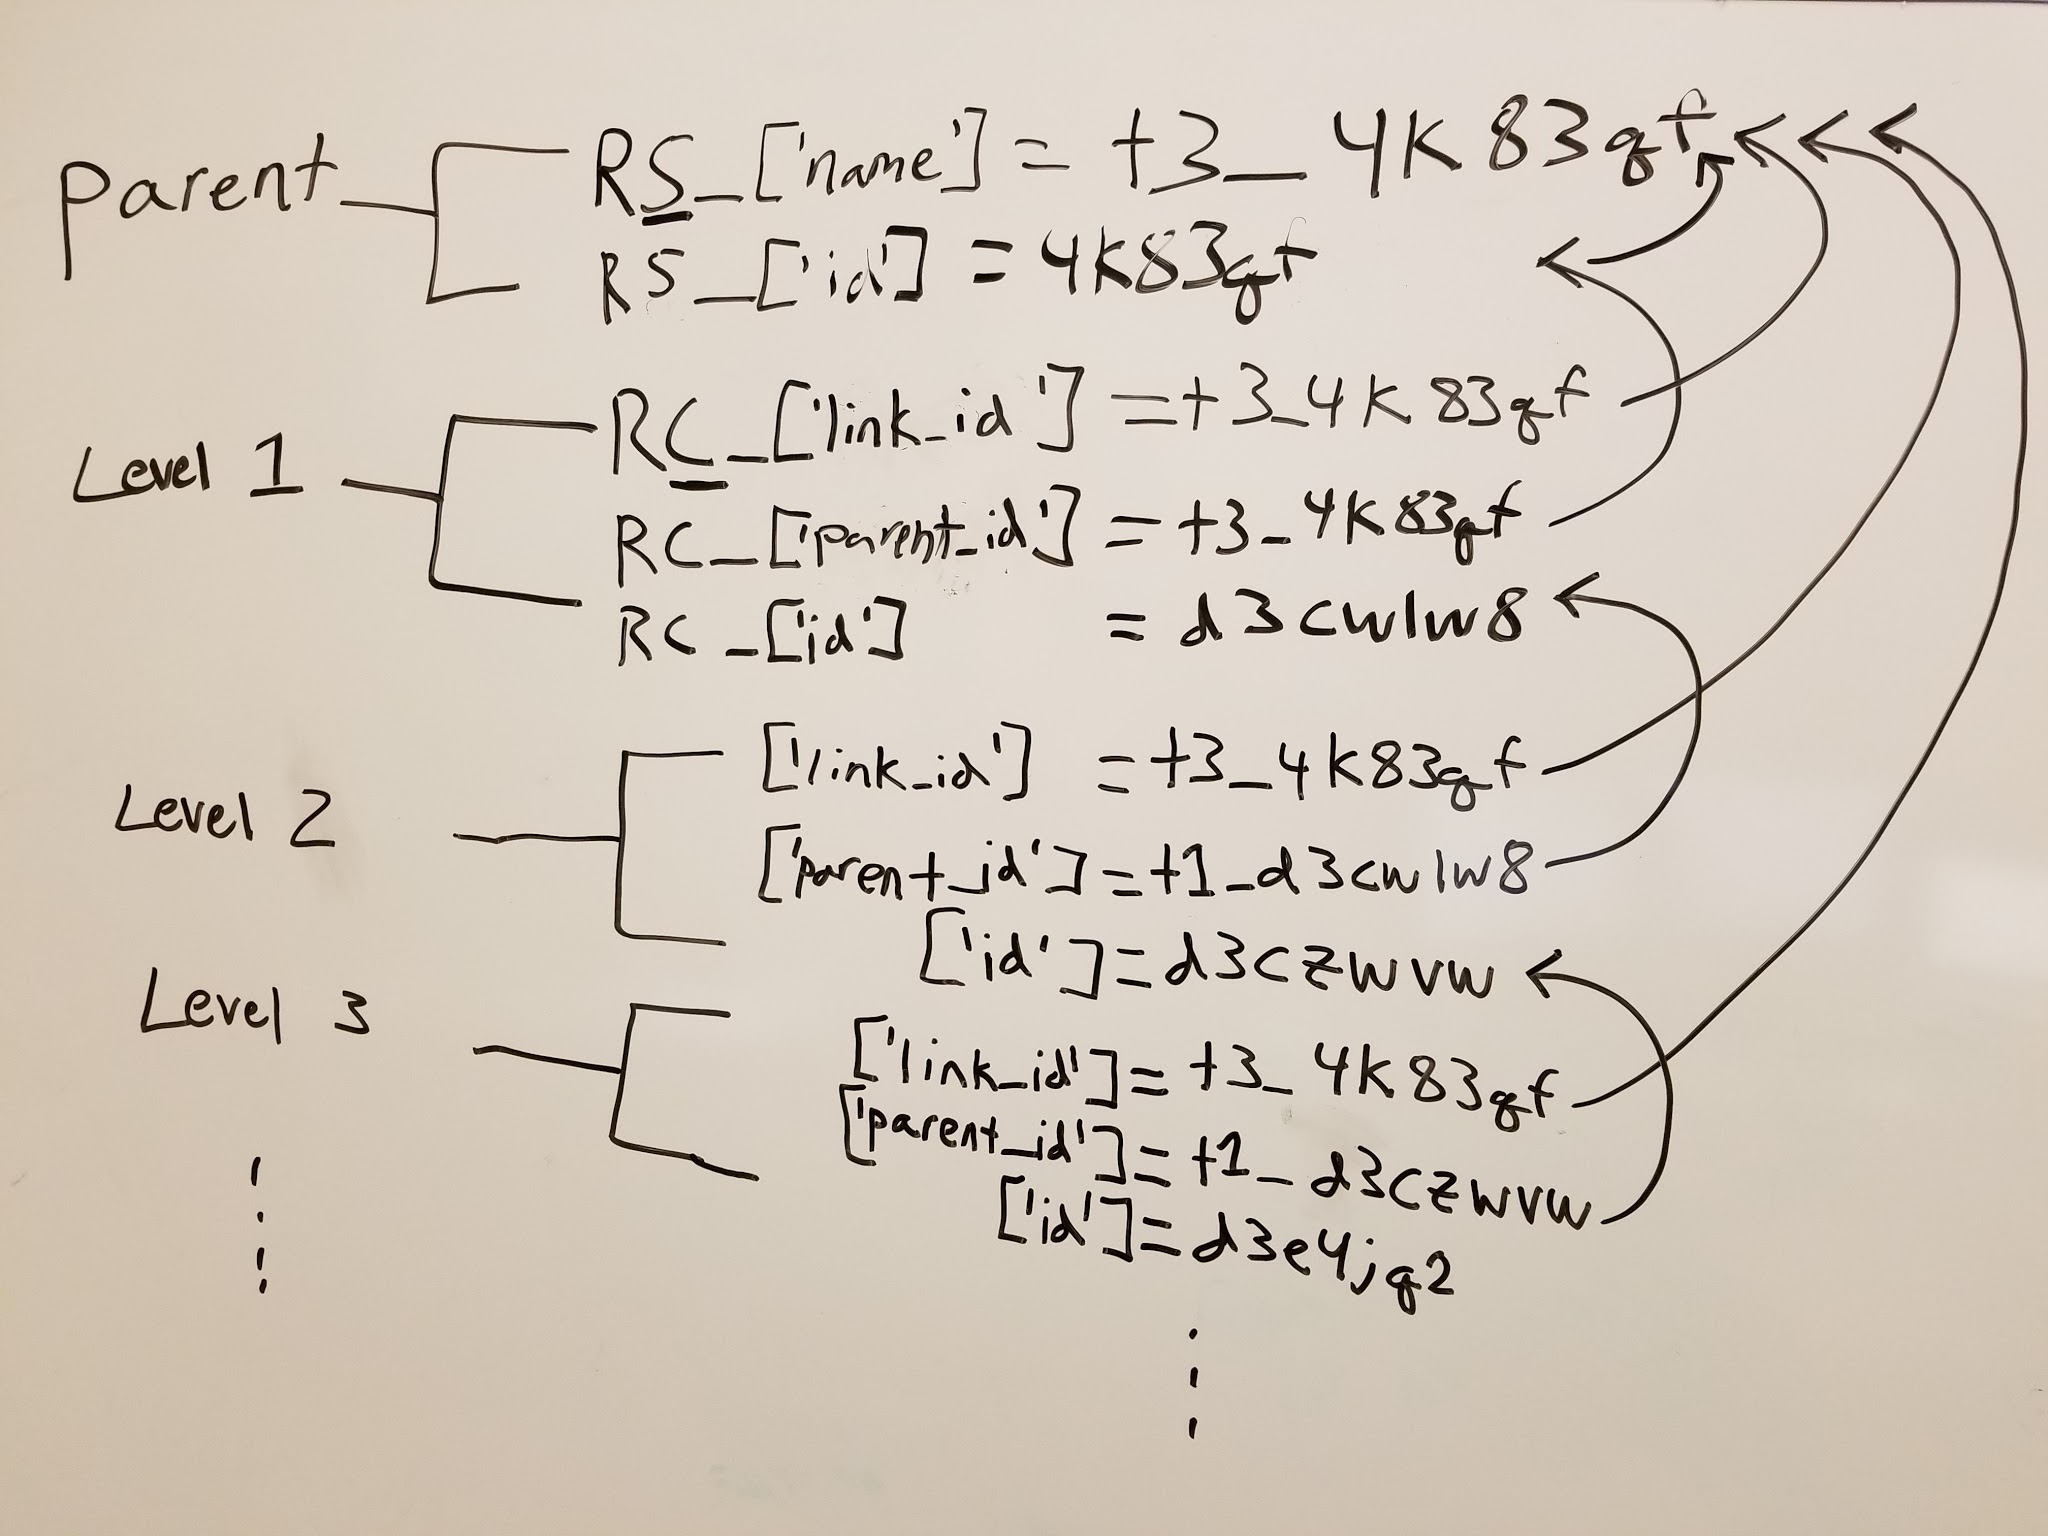 parent
RS_['name'] = t3_4k83qf
RS_['id'] = 4k83qf
Level 1
RC_['link_id'] = t3_4k83qf
RC_['parent_id'] = t3_4k83qf
RC_['id'] = d3cwlw8
Level 2
['link_id'] = t3_4k83qf
['parent_id'] = t1_d3cwlw8
['id'] = d3czwvw
Level 3
['link_id'] = t3_4k83qf
['parent_id'] = t1_d3czwvw
['id'] = d3e4jq2